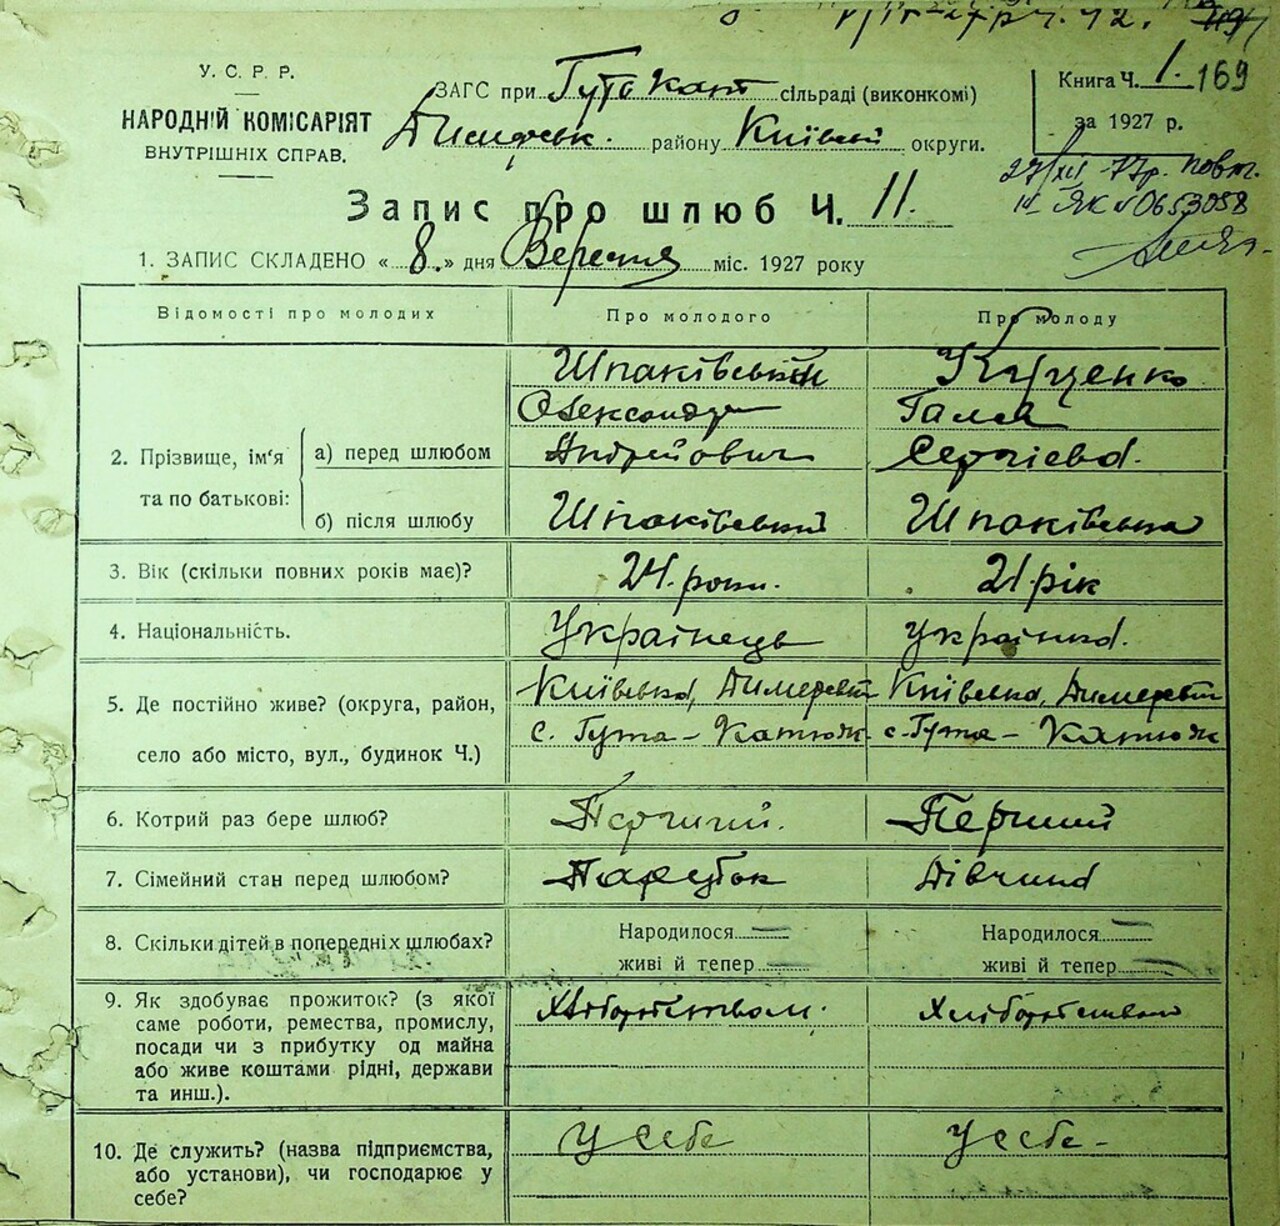 У. С. Р. Р.
НАРОДНІЙ КОМІСАРІЯТ
ВНУТРІШНІХ СПРАВ.
ЗАГС при Гута Кат сільраді (виконкомі)
Димерськ. району Київської округи.
Книга Ч. 1. 169
за 1927 р.
27/XII-77р. повт.
ЯК № 0653058
Запис про шлюб Ч. 11.
1. ЗАПИС СКЛАДЕНО « 8. » дня Вересня міс. 1927 року
Відомості про молодих Про молодого Про молоду
Шпаківський Куценко
Олександр Галя
2. Прізвище, ім'я та по батькові: а) перед шлюбом Андрійович Сергієва.
б) після шлюбу Шпаківський Шпаківська
3. Вік (скільки повних років має)? 24. роки. 21. рік
4. Національність. Українець українка.
5. Де постійно живе? (округа, район, Київська, Димерськ Київська, Димерськ
село або місто, вул., будинок Ч.) с. Гута - Катюж. с. Гута - Катюж
6. Котрий раз бере шлюб? Перший. Перший
7. Сімейний стан перед шлюбом? Парубок Дівчина
8. Скільки дітей в попередніх шлюбах? Народилося — Народилося —
живі й тепер — живі й тепер —
9. Як здобуває прожиток? (з якої Хліборобством. Хліборобством
саме роботи, ремества, промислу,
посади чи з прибутку од майна
або живе коштами рідні, держави
та инш.).
10. Де служить? (назва підприємства, У себе У себе -
або установи), чи господарює у
себе?